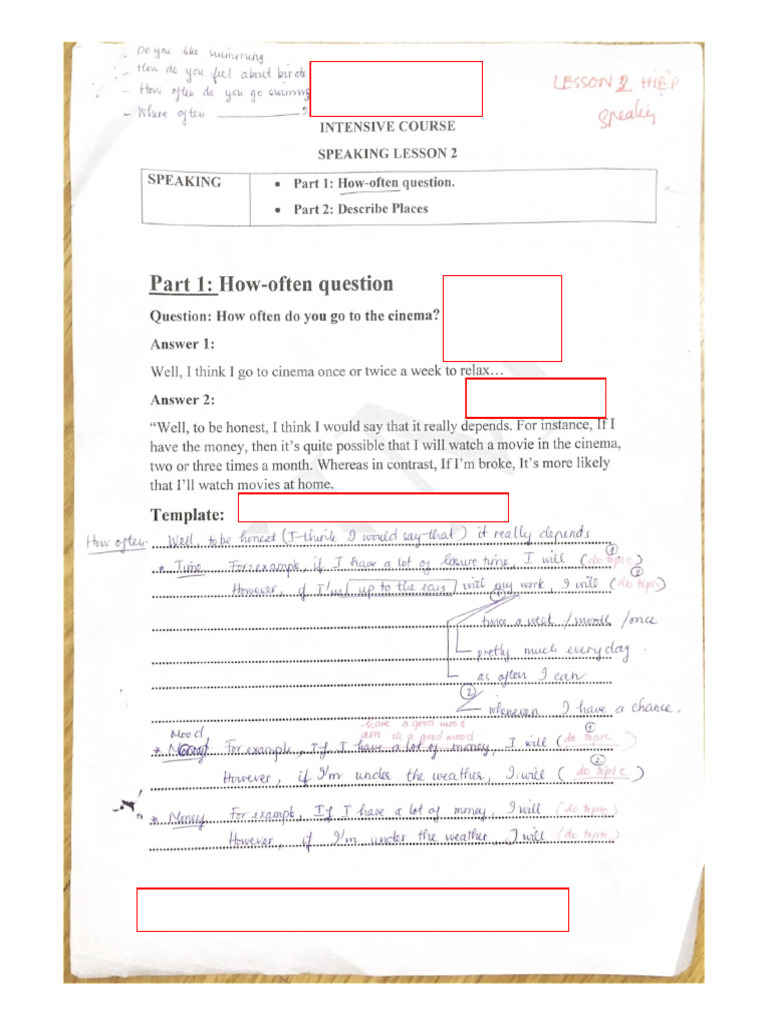 - Do you like swimming
- How do you feel about birds
- How often do you go swimming
- Where often ?
LESSON 2 HIỆP
Speaking
INTENSIVE COURSE
SPEAKING LESSON 2
SPEAKING
• Part 1: How-often question.
• Part 2: Describe Places
Part 1: How-often question
Question: How often do you go to the cinema?
Answer 1:
Well, I think I go to cinema once or twice a week to relax…
Answer 2:
“Well, to be honest, I think I would say that it really depends. For instance, If I
have the money, then it’s quite possible that I will watch a movie in the cinema,
two or three times a month. Whereas in contrast, If I’m broke, It’s more likely
that I’ll watch movies at home.
Template:
How often Well, to be honest (I think I would say that) it really depends
* Time For example, if I have a lot of leisure time, I will (do topic) ①
However, if I'm up to the ears with my work, I will (do topic) ②
①
twice a week / month / once
pretty much every day.
as often I can
②
whenever I have a chance.
have a good mood
Mood am in a good mood
* For example, If I have a lot of money, I will (do topic) ①
However, if I'm under the weather, I will (do topic) ②
* Money For example, If I have a lot of money, I will (do topic)
However, if I'm under the weather, I will (do topic)